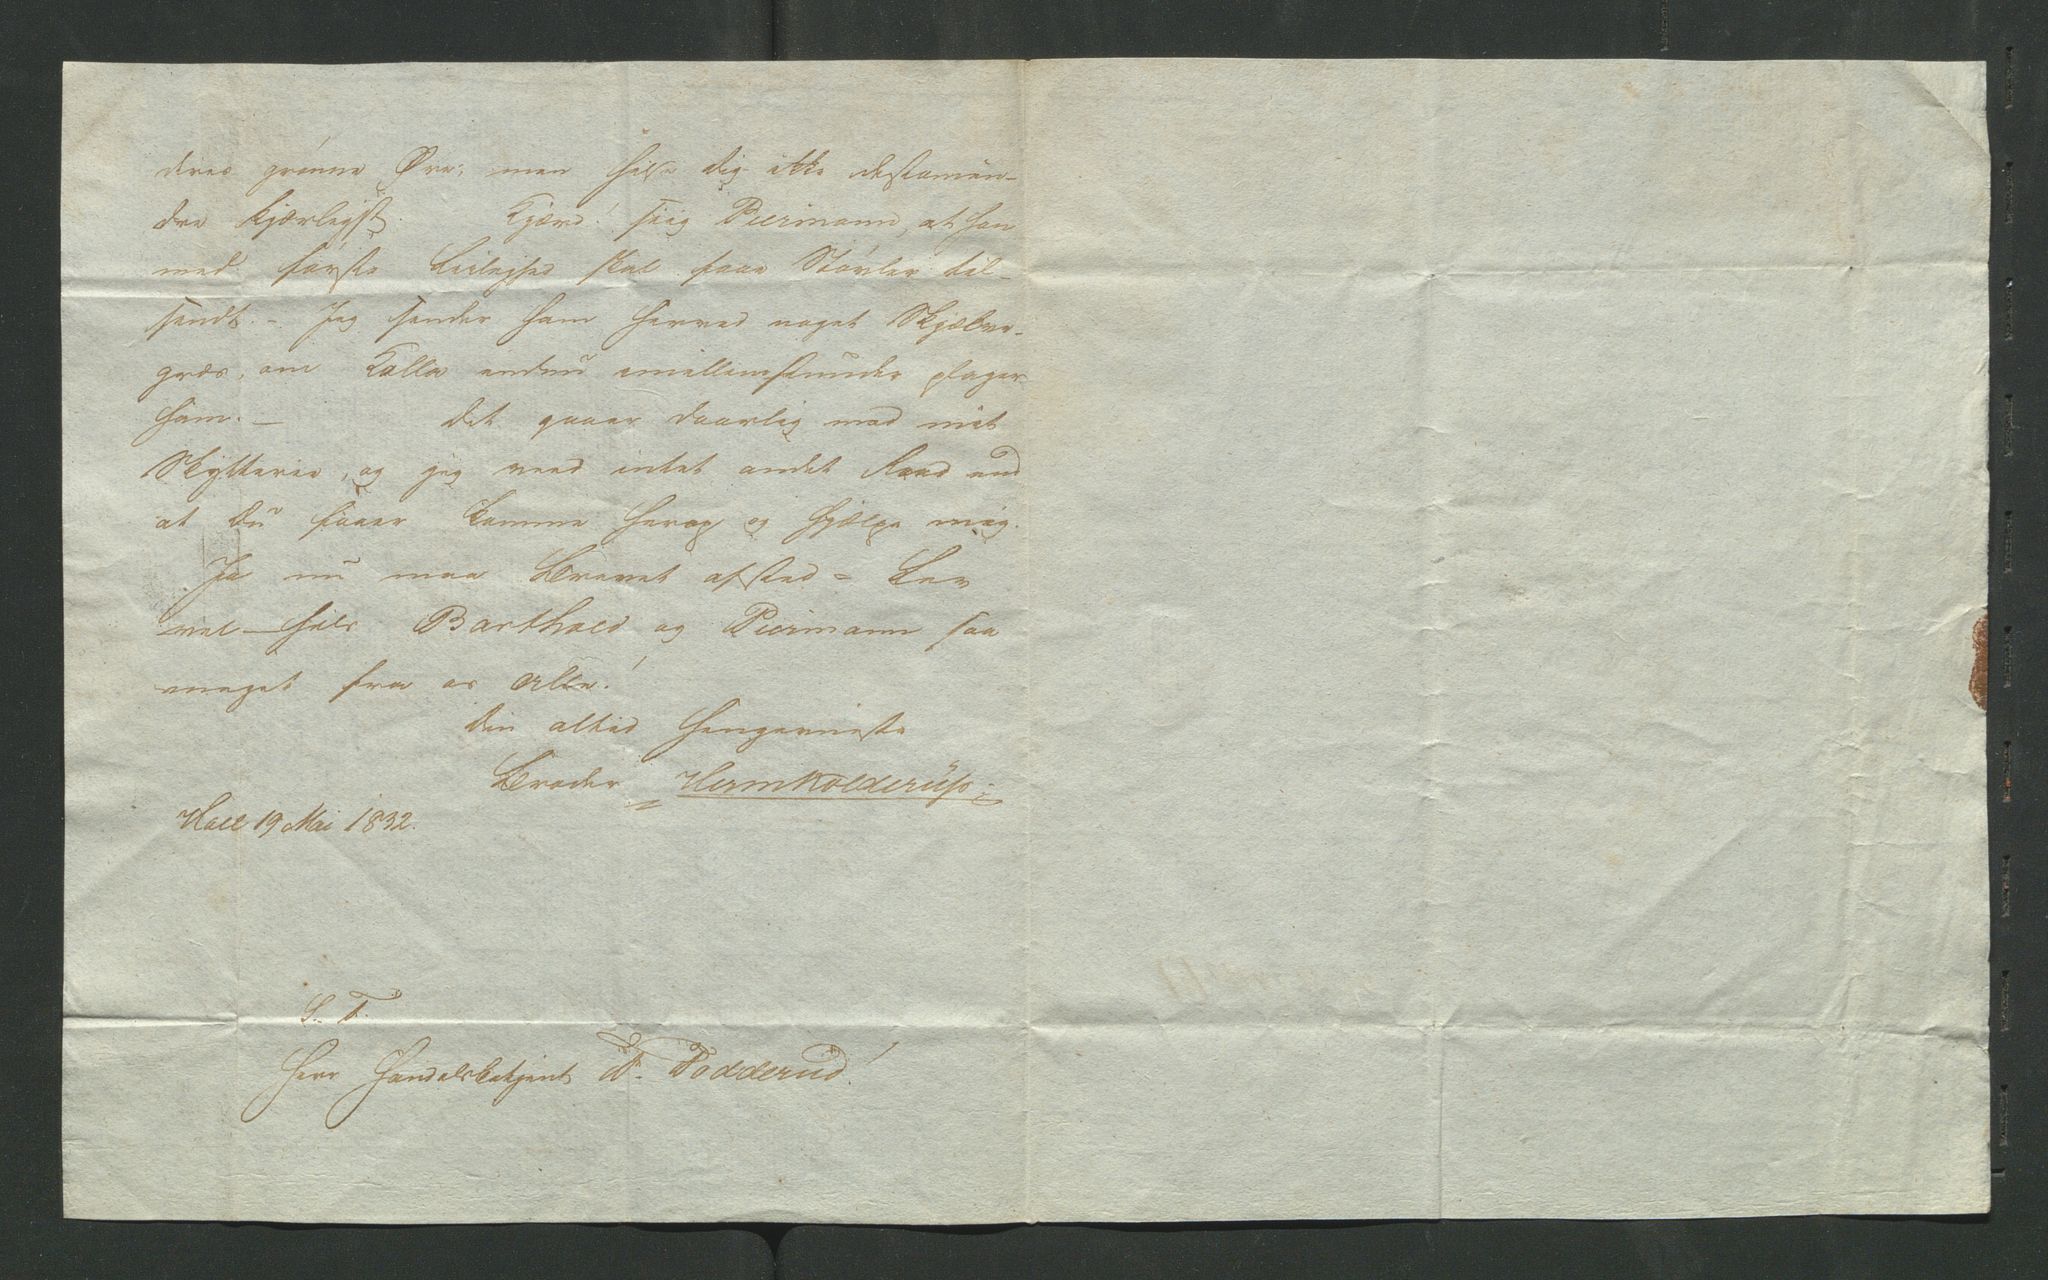 deres grønne Øre; men hilse Dig ikke destomin-
dre kjærligst. Kjære! siig Piermann, at han
med første Leilighed skal faae Støvler til-
sendt. - Jeg sender ham herved noget Skjælver-
græs, om Kolla endnu imellemstunder plager
ham. —
Det gaaer daarlig med mit
Skytterie, og jeg veed intet andet Raad end
at Du faaer komme herop og hjælpe mig.
Ja nu maa Brevet afsted = Lev
vel — hils Barthold og Piermann saa
meget fra os Alle!
Din altid hengivneste
Broder Hermkolderüp
Hall 19 Mai 1832.
S. T.
Herr Handelsbetjent P. Podderud!